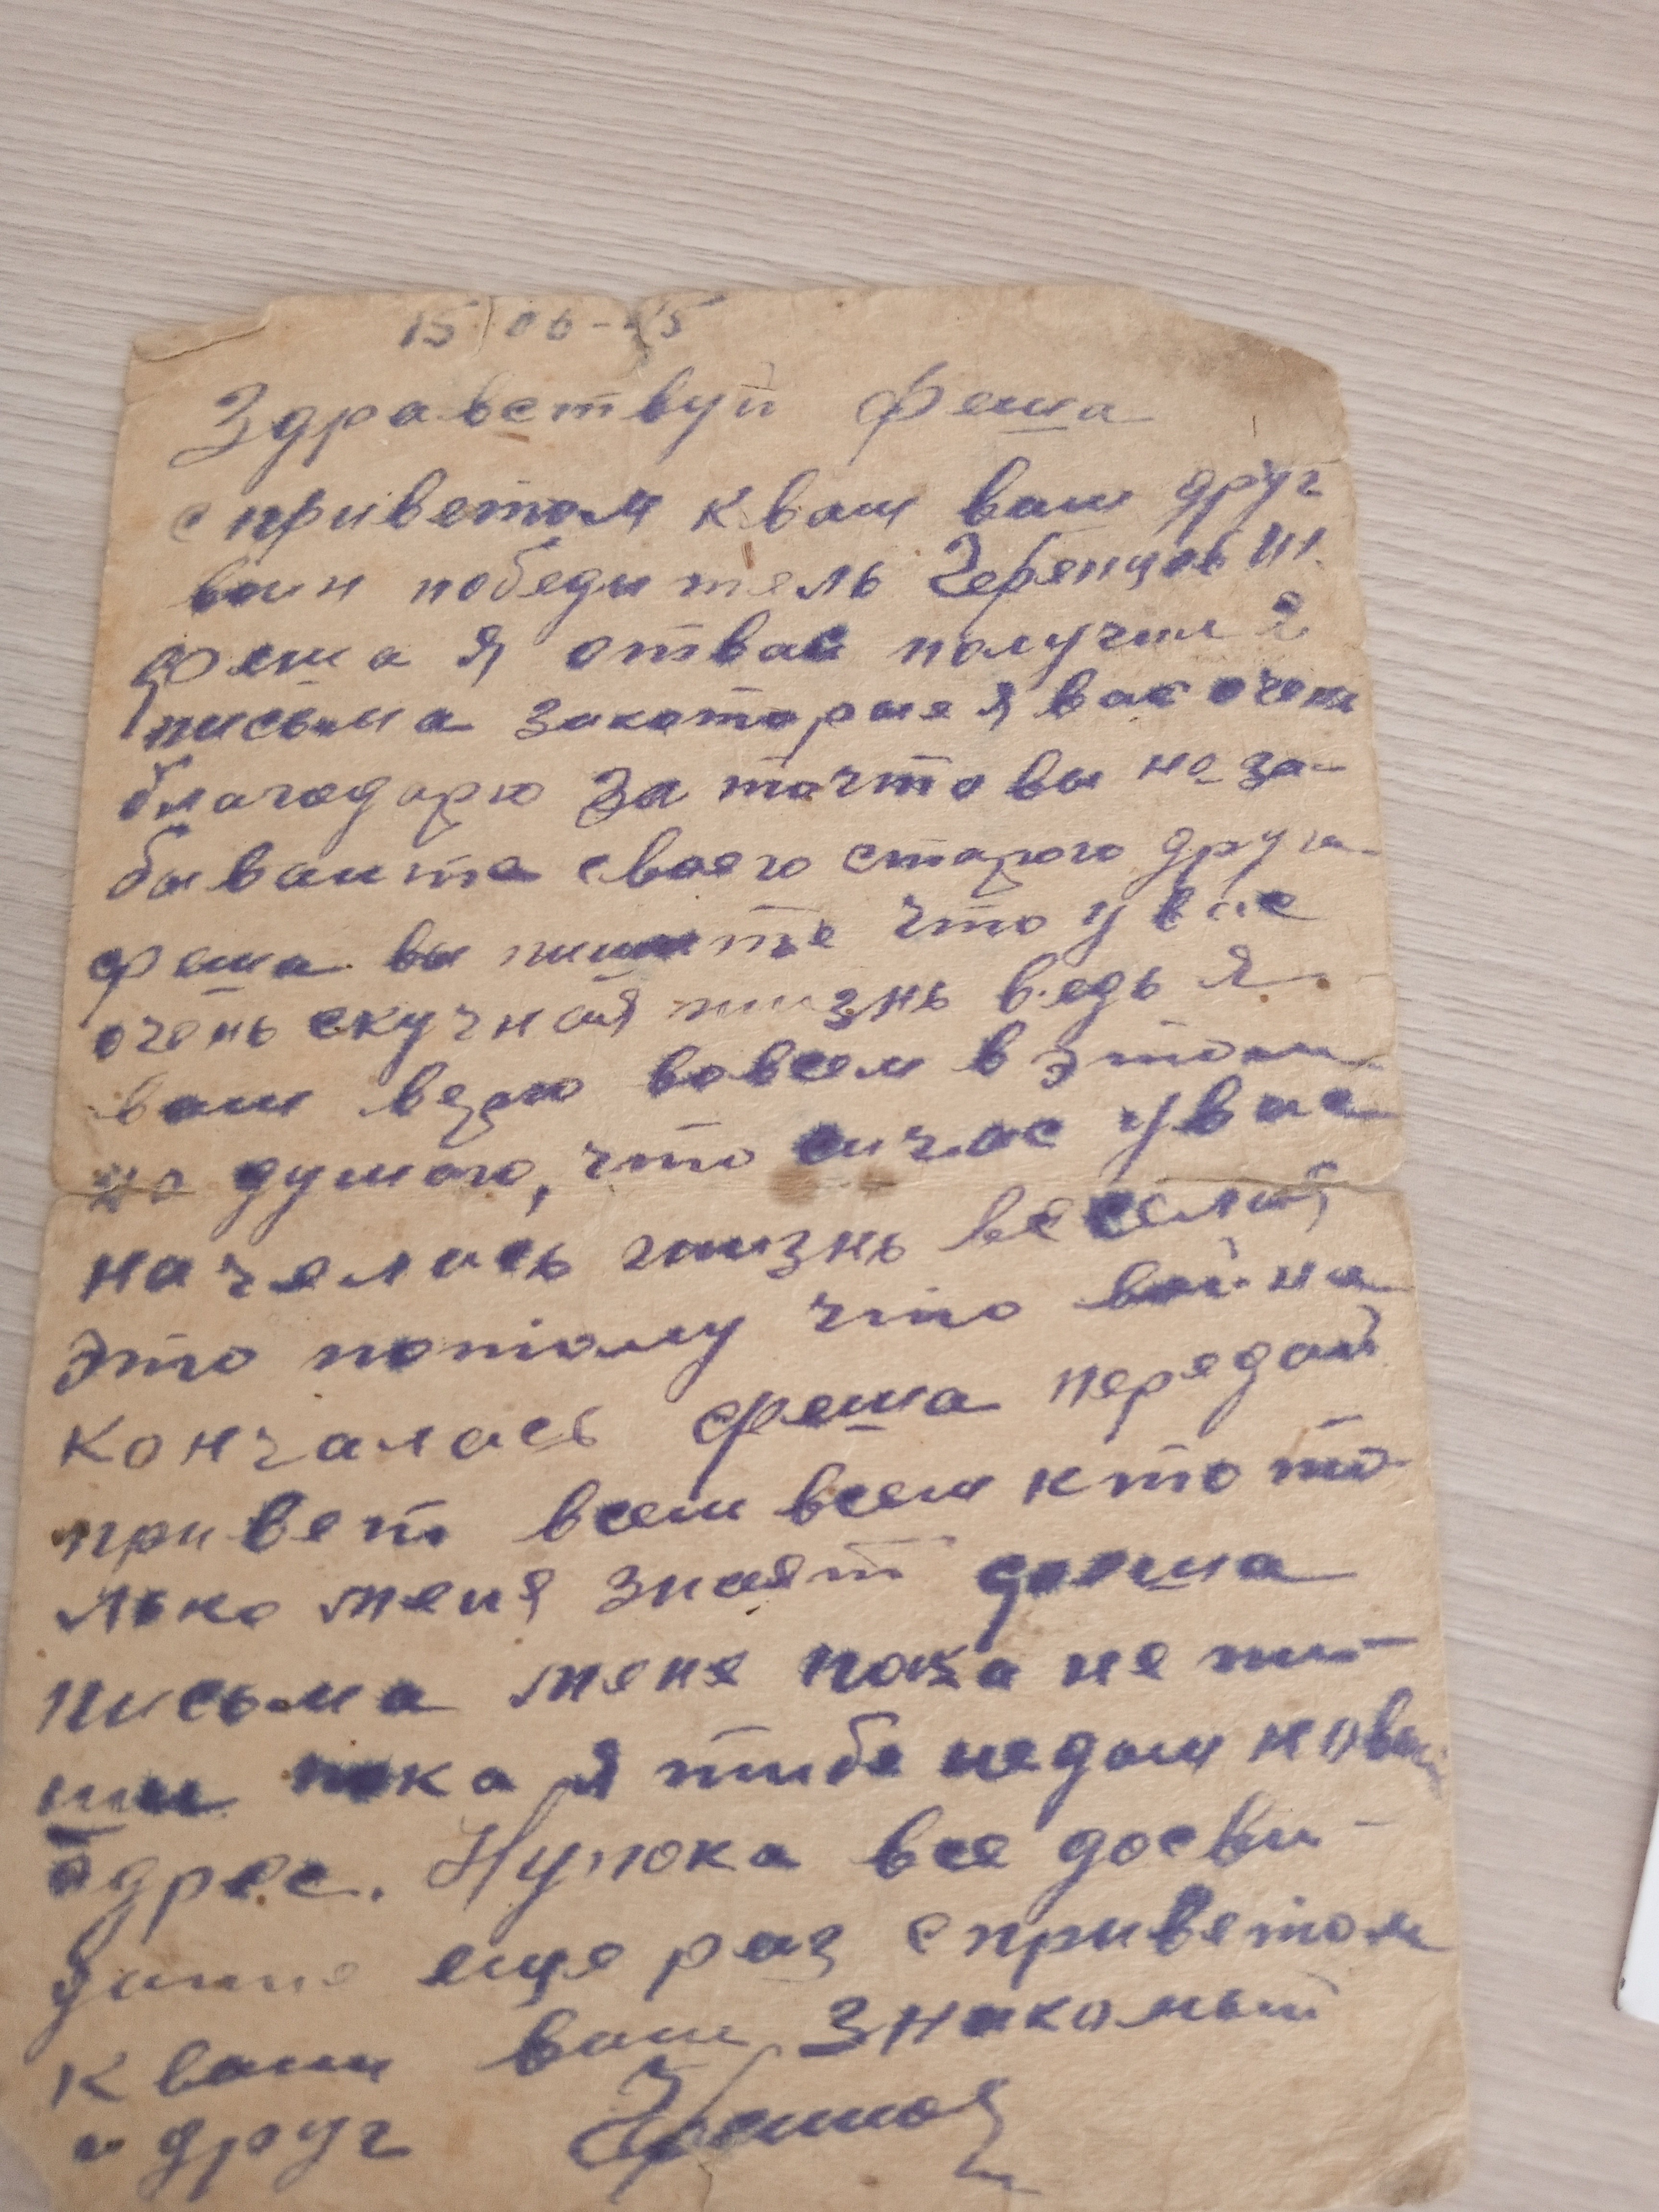 15/06-45
Здравствуй Феша
с приветом к вам ваш друг
воин победитель Черенцов
Феша я отвас получил 2
письма закоторые я вас очень
благодарю За точто вы не за-
бываите своего старого друга
феша вы пишите что у вас
очень скучная жизнь ведь я
вам верю вовсем в этом
но думаю, что сичас увас
начелась жизнь веселая
Это потому что война
кончалась феша передай
привет всем всем кто то
лько меня знает
письма мене пока не пи-
ши пока я тибе недам новый
адрес. Нупока все досви-
дание еще раз с приветом
к вам ваш знакомый
и друг